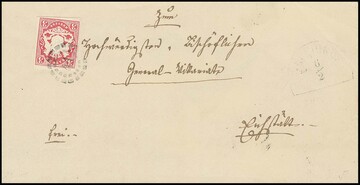 Zum
Hochwürdigsten, Bischöflichen
General-Vikariate
frei.
Eichstätt.